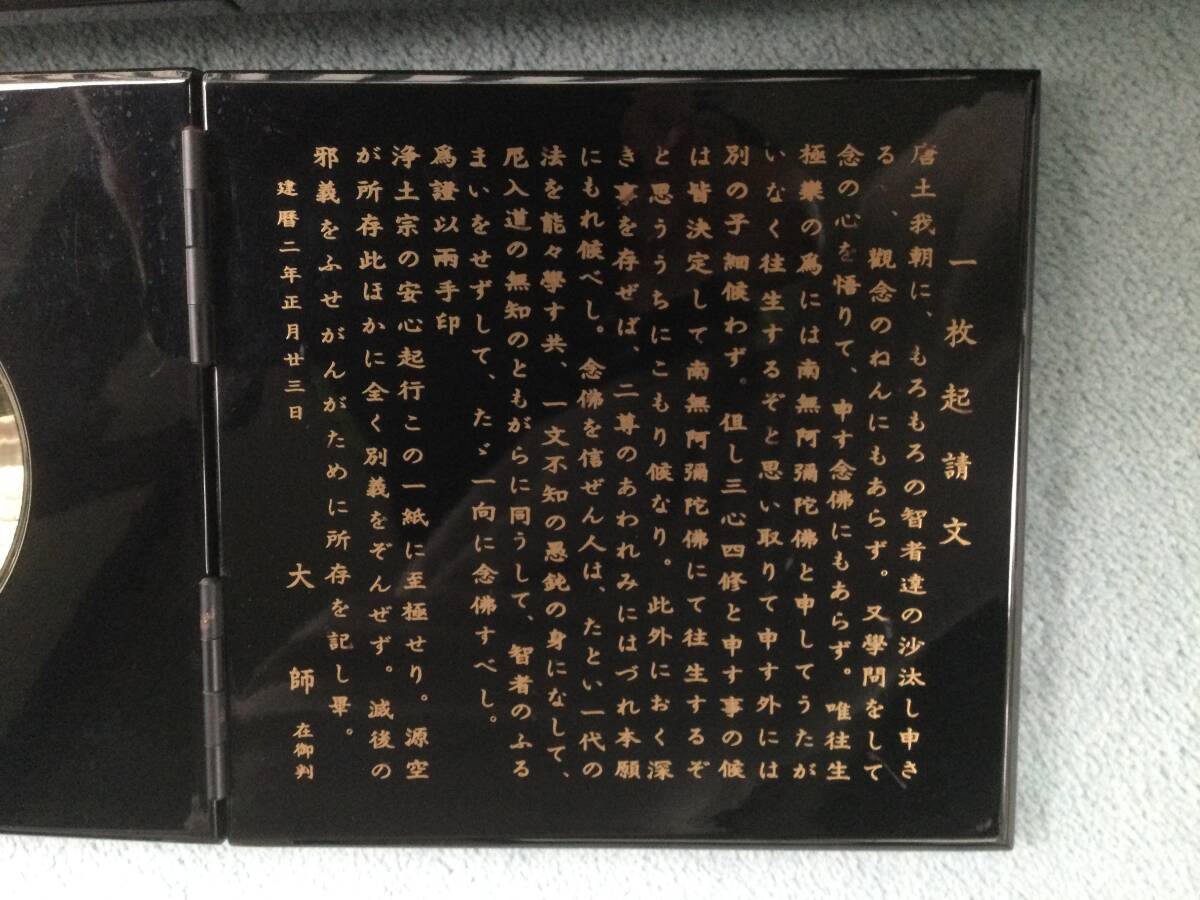 一枚起請文
唐土我朝に、もろもろの智者達の沙汰し申さ
る、觀念のねんにもあらず。又學問をして
念の心を悟りて、申す念佛にもあらず。唯往生
極樂の爲には南無阿彌陀佛と申してうたが
いなく往生するぞと思い取りて申す外には
別の子細候わず。但し三心四修と申す事の候
は皆決定して南無阿彌陀佛にて往生するぞ
と思ううちにこもり候なり。此外におく深
き事を存ぜば、二尊のあわれみにはづれ本願
にもれ候べし。念佛を信ぜん人は、たとい一代の
法を能々學す共、一文不知の愚鈍の身になして、
尼入道の無知のともがらに同うして、智者のふる
まいをせずして、たゞ一向に念佛すべし。
爲證以兩手印
浄土宗の安心起行この一紙に至極せり。源空
が所存此ほかに全く別義をぞんぜず。滅後の
邪義をふせがんがために所存を記し畢。
建暦二年正月廿三日　大師 在御判